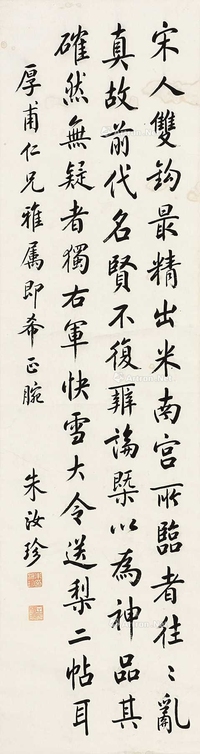 宋人雙鈎最精出米南宫所臨者往〻亂
真故前代名賢不復辨論槩以為神品其
確然無疑者獨右軍快雪大令送梨二帖耳
厚甫仁兄雅属即希正腕
朱汝珍